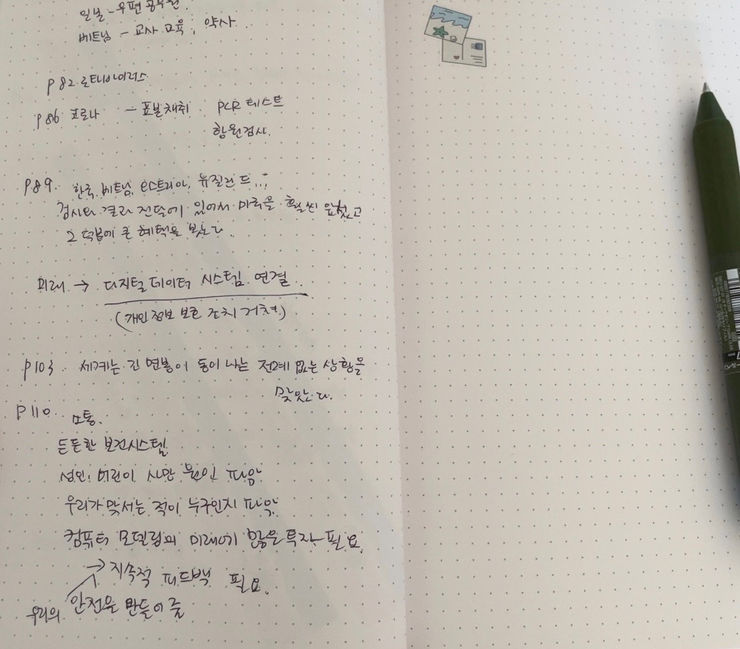 일본 - 우편공무원
베트남 - 교사 교육, 약사
p82 로타바이러스
p86 코로나 - 표본채취 PCR 테스트
항원검사.
p89. 한국, 베트남, 오스트리아, 뉴질랜드...
검사와 결과 전달에 있어서 미국을 훨씬 앞섰고
그 덕분에 큰 혜택을 봤다.
미래 → 디지털 데이터 시스템 연결.
(개인정보 보호 조치 거쳐)
p103 세계는 긴 연봉이 동이 나는 전례 없는 상황을
맞았다.
p110 소통.
든든한 보건시스템
성인, 어린이 사망 원인 파악
우리가 맞서는 적이 누구인지 파악
컴퓨터 모델링의 미래에 많은 투자 필요.
→ 지속적 피드백 필요.
우리의 안전을 만들어줌